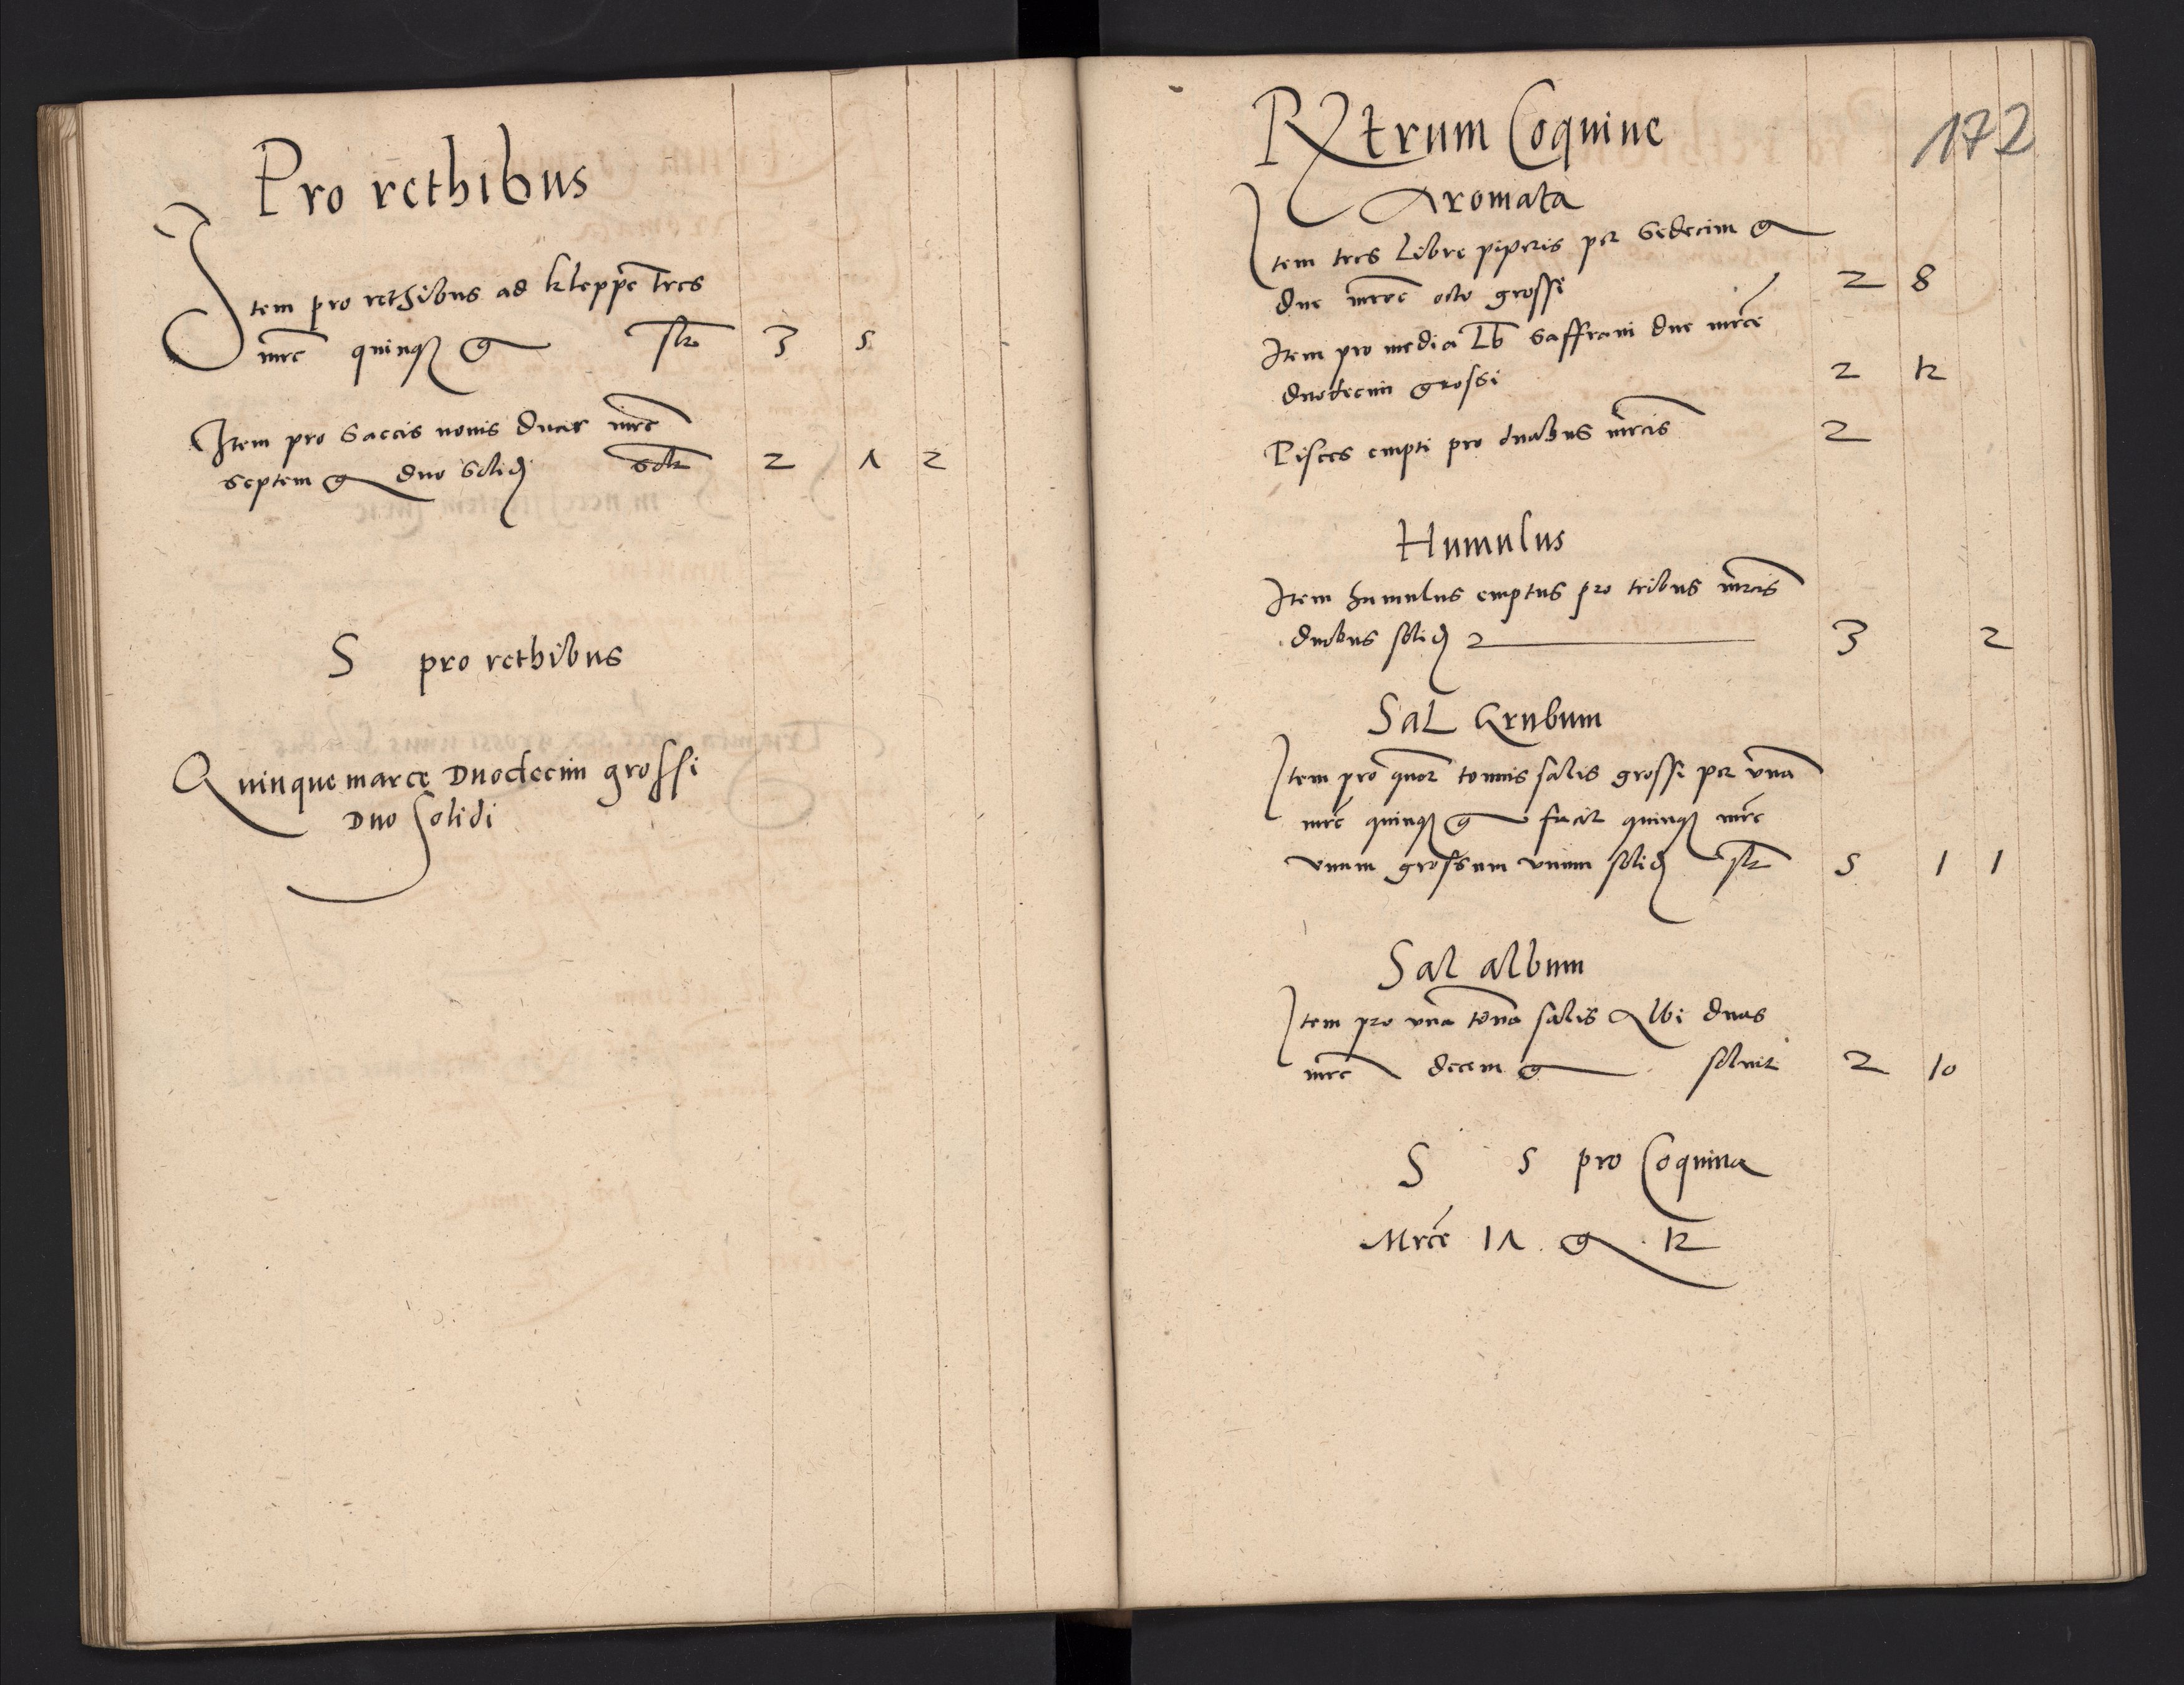 Pro rethibus
Item pro rethibus ad kleppe tres
mrc quinq g 3 5
Item pro saccis novis duas mrc
septem g duo solid 2 7 2
S pro rethibus
Quinque marce Duodecim grossi
Duo solidi
172
Rerum Coquine
Aromata
Item tres libre piperis per sedecim g
due mrce octo grossi 2 8
Item pro media Lb saffrani due mrce
duodecim grossi 2 12
Pisces empti pro duabus mrcis 2
Humulus
Item humulus emptus pro tribus mrcis
duobus solid 2 3 2
Sal Grubum
Item pro quor tonnis salis grossi per una
mrc quinq g facit quinq mrc
unum grossum unum solid 5 1 1
Sal album
Item pro una tona salis Albi duas
mrc decem g solvit 2 10
S S pro Coquina
Mrce 17 g 12